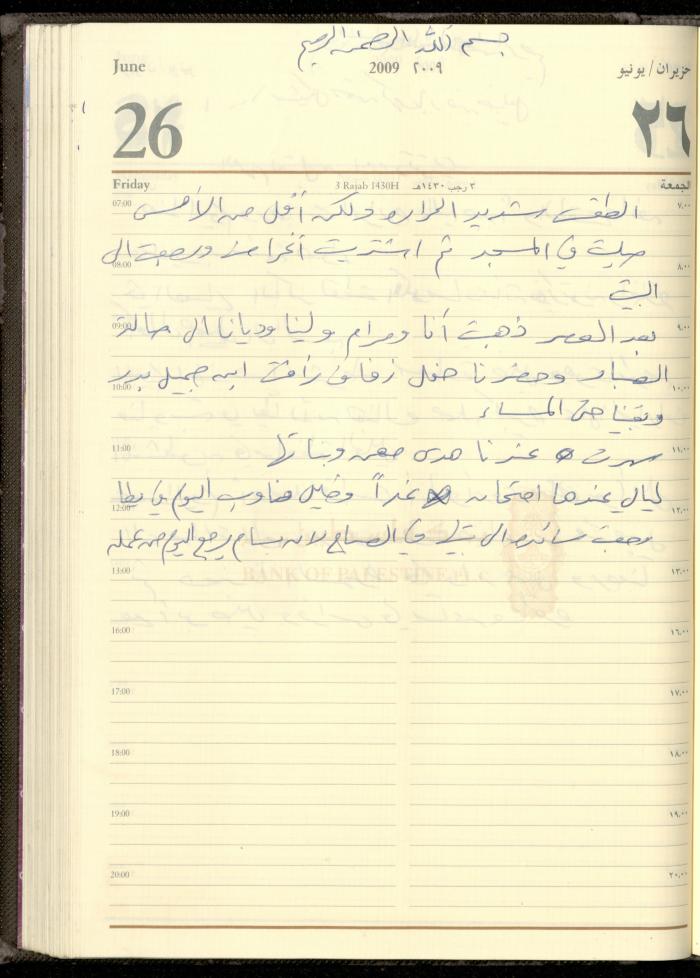 بسم الله الرحمن الرحيم
June 2009 ٢٠٠٩ حزيران / يونيو
26 ٢٦
Friday 3 Rajab 1430H ٣ رجب ١٤٣٠هـ الجمعة
07:00 الطقس شديد الحرارة ولكن أقل من الأمس ٧,٠٠
صليت في المسجد ثم اشتريت أغراض ورجعت الى
08:00 ٨,٠٠
البيت
09:00 بعد العصر ذهبت أنا ومرام ولينا وديانا الى صالة ٩,٠٠
الصياد وحضرنا حفل زفاف رأفت ابن جميل بدر
10:00 ١٠,٠٠
وبقينا حتى المساء
11:00 سهرت عندنا هدى وبناتها ١١,٠٠
ليالي عندها امتحان غداً مناوب اليوم في
12:00 ١٢,٠٠
الى في الصباح لان بسام يرجع اليوم من عمله
13:00 BANK OF PALESTINE ١٣,٠٠
16:00 ١٦,٠٠
17:00 ١٧,٠٠
18:00 ١٨,٠٠
19:00 ١٩,٠٠
20:00 ٢٠,٠٠